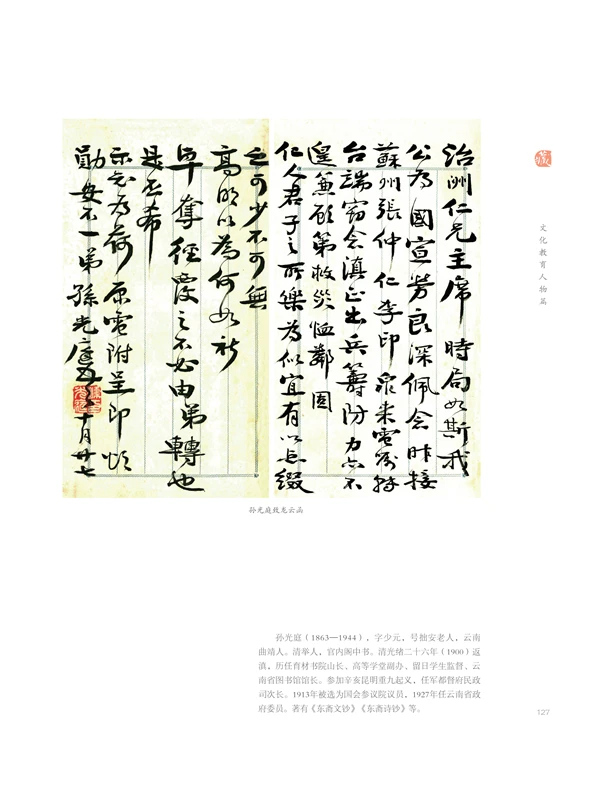 治洲仁兄主席 時局如斯我
公為國宣勞良深佩念昨接
蘇州張仲仁李印泉来電囑轉
台端窃念滇正出兵籌防力亦不
遑兼顧第救災恤鄰固
仁人君子之所樂為似宜有以点缀
之可少不可無
高明以為何如祈
卓奪径覆之不必由弟轉也
是否希
示知為荷 原電附呈即頌
勛安不一 弟孫光庭 十月廿七
文化教育人物篇
孙光庭致龙云函
孙光庭（1863—1944），字少元，号拙安老人，云南
曲靖人。清举人，官内阁中书。清光绪二十六年（1900）返
滇，历任育材书院山长、高等学堂副办、留日学生监督、云
南省图书馆馆长。参加辛亥昆明重九起义，任军都督府民政
司次长。1913年被选为国会参议院议员，1927年任云南省政
府委员。著有《东斋文钞》《东斋诗钞》等。
127